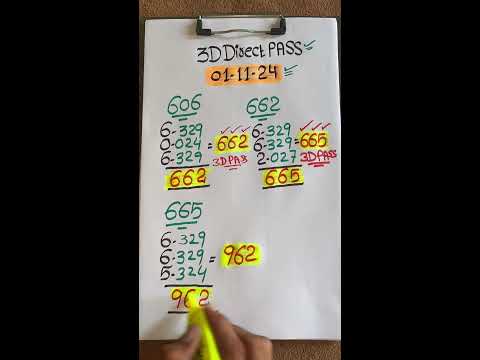 3D Direct PASS
01-11-24
606
6·329
0·024 = 662
6·329 3D PAS
662
662
6·329
6·329 = 665
2·027 3D PASS
665
665
6·329
6·329 = 962
5·324
962